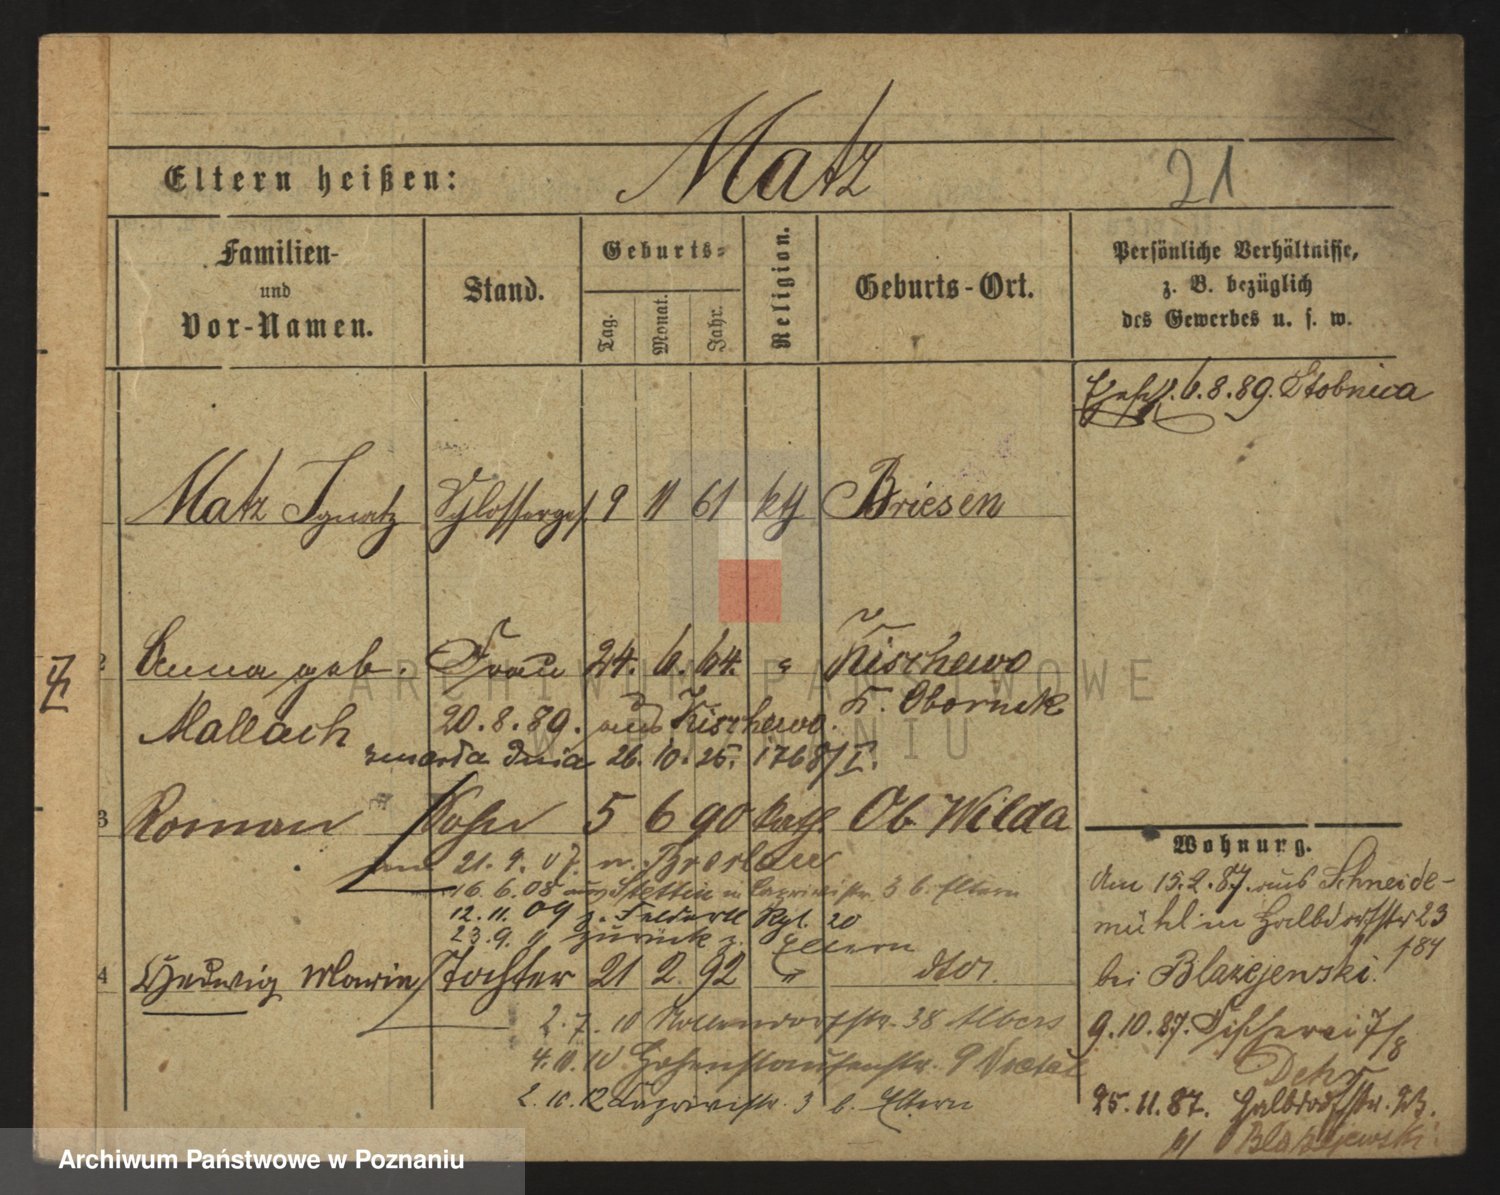 Matz
Eltern heißen:
21
Familien-
und
Vor-Namen.
Stand.
Geburts-
Tag.
Monat.
Jahr.
Religion.
Geburts-Ort.
Persönliche Verhältnisse,
z. B. bezüglich
des Gewerbes u. s. w.
6.8.89. Stobnica
Matz Ignatz Schlosserges. 9 11 61 kth Briesen
2 Anna geb. Frau 24. 6. 64. " Kischewo
Mallach 20.8.89. aus Kischewo. K. Obornik
zmarła dnia 26.10.25. 1768/I.
3 Roman Sohn 5 6 90 kath Ob Wilda
21.9.07. n. Breslau
16.6.08 aus Stettin n. 3 b. Eltern
12.11.09 z. Feldartl Rgt. 20
23.9. " zurück z. Eltern
4 Hedwig Maria Tochter 21 2 92 " dto.
2.7.10 Nollendorfstr. 38 Albers
4.10.10 Hohenstaufenstr. 9
2.10.12 3 b. Eltern
Wohnung.
Am 15.2.87. aus Schneide-
mühl in Halbdorfstr 23
bei Blazejewski.
9.10.87. Fischerei 7/8
25.11.87. Halbdorfstr. 23.
b/ Blazejewski
ARCHIWUM PAŃSTWOWE
W POZNANIU
Archiwum Państwowe w Poznaniu